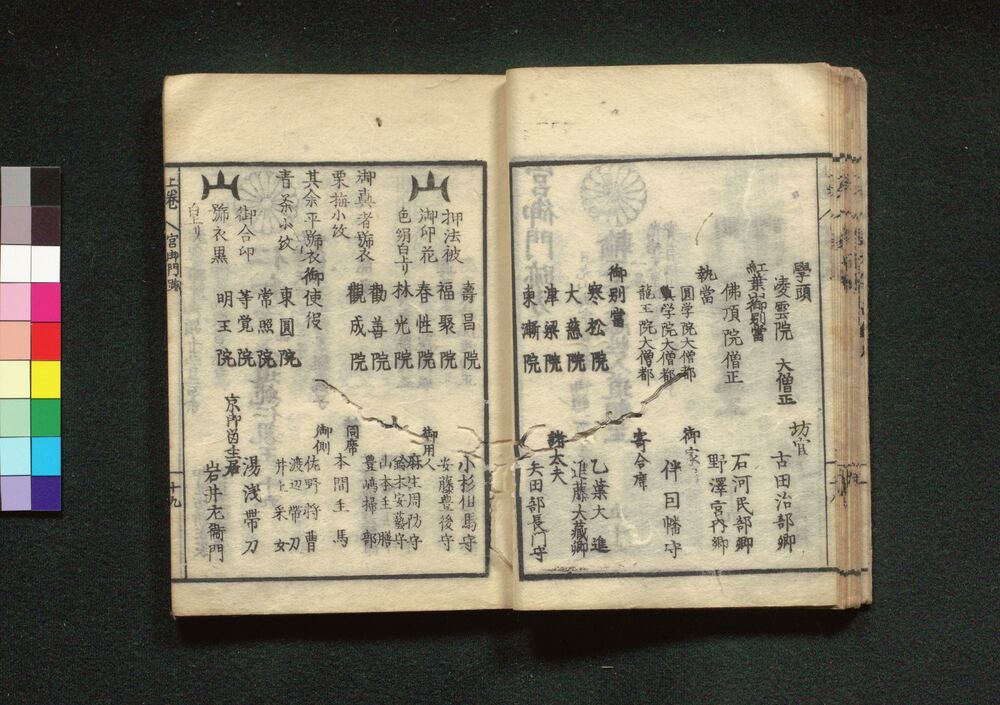 學頭
凌雲院 大僧正
紅葉山御別當
佛頂院僧正
執當
圓学院大僧都
真学院大僧都
龍王院大僧都
御別當
寒松院
大慈院
津梁院
東漸院
坊官
古田治部卿
石河民部卿
野澤宮内卿
御家
伴因幡守
寄合席
乙葉大進
進藤大蔵卿
諸太夫
矢田部長門守
押法被
御印花
色絹白上り
御真者號衣
栗梅小紋
其余平號衣
青茶小紋
御合印
號衣黒
白上り
壽昌院
福聚院
春性院
林光院
勸善院
觀成院
御使役
東圓院
常照院
等覚院
明王院
小杉但馬守
安藤豊後守
御用人
麻生周防守
鈴木安藝守
山本主膳
豊嶋掃部
同席
本間主馬
御側
佐野将曹
渡辺帯刀
井上采女
京御留主居
湯浅帯刀
岩井左衛門
上巻
宮御門跡
十九